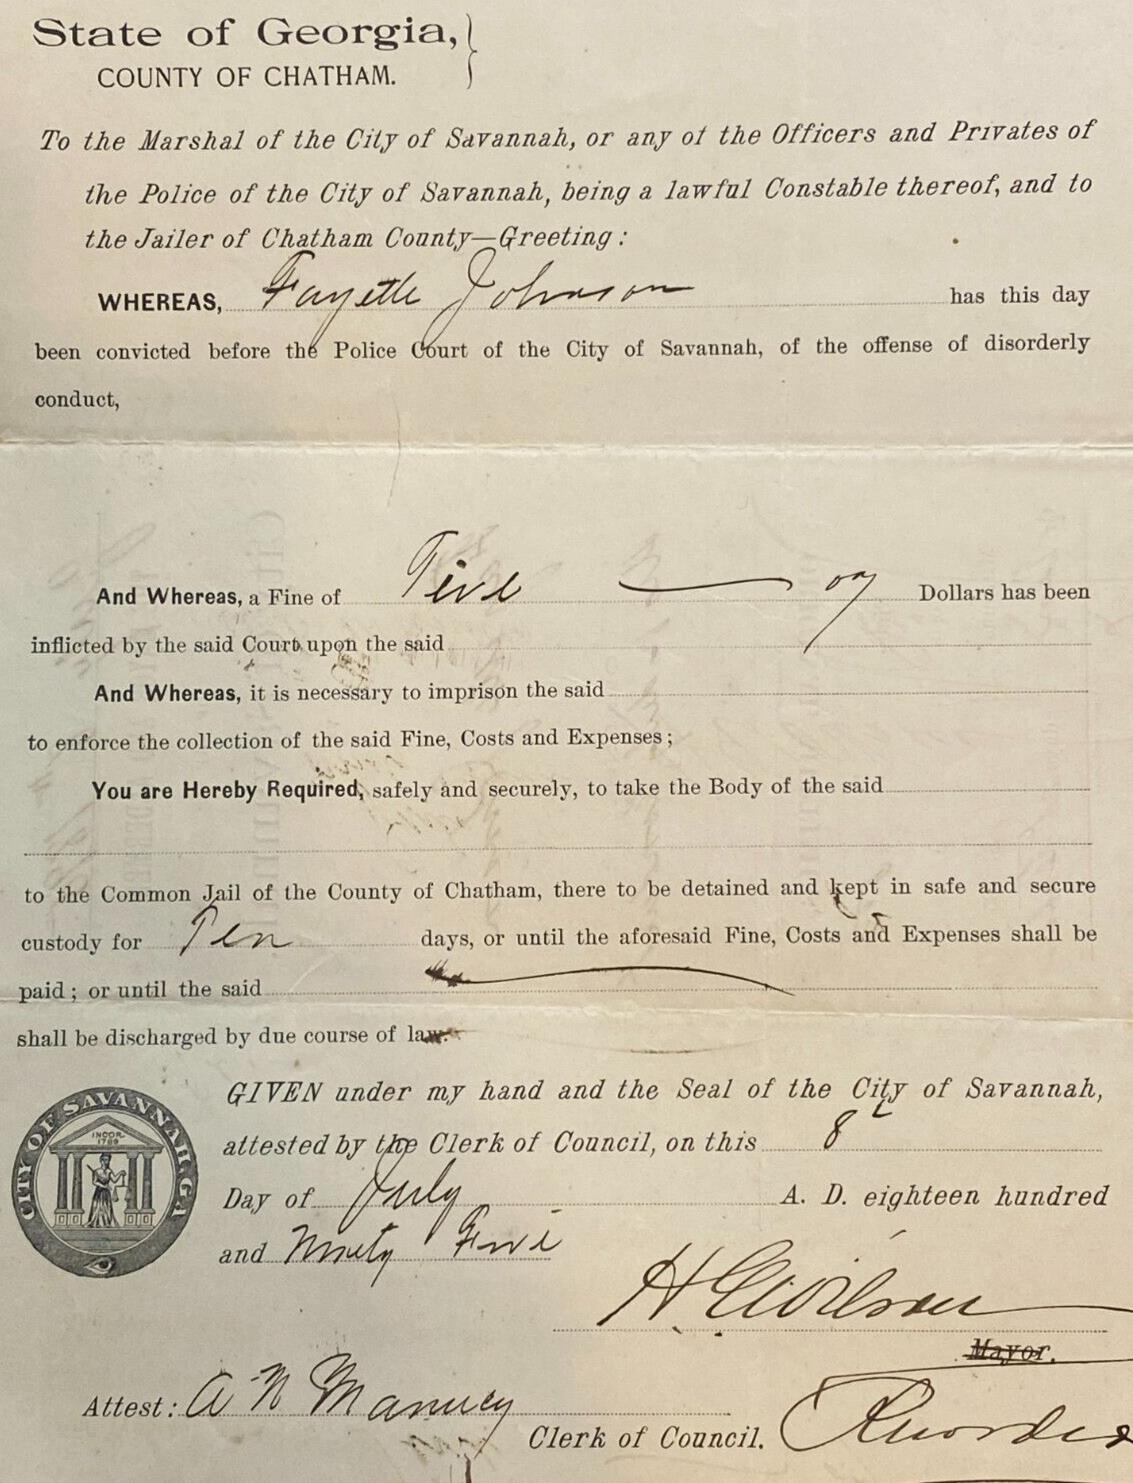 State of Georgia,
COUNTY OF CHATHAM.
To the Marshal of the City of Savannah, or any of the Officers and Privates of
the Police of the City of Savannah, being a lawful Constable thereof, and to
the Jailer of Chatham County—Greeting:
WHEREAS, Fayette Johnson has this day
been convicted before the Police Court of the City of Savannah, of the offense of disorderly
conduct,
And Whereas, a Fine of Five Dollars has been
inflicted by the said Court upon the said
And Whereas, it is necessary to imprison the said
to enforce the collection of the said Fine, Costs and Expenses;
You are Hereby Required, safely and securely, to take the Body of the said
to the Common Jail of the County of Chatham, there to be detained and kept in safe and secure
custody for Ten days, or until the aforesaid Fine, Costs and Expenses shall be
paid; or until the said
shall be discharged by due course of law.
CITY OF SAVANNAH, GA.
INCOR.
1789
GIVEN under my hand and the Seal of the City of Savannah,
attested by the Clerk of Council, on this 8
Day of July A. D. eighteen hundred
and Ninety Five
Mayor.
Attest: A N Manucy
Clerk of Council. Recorder